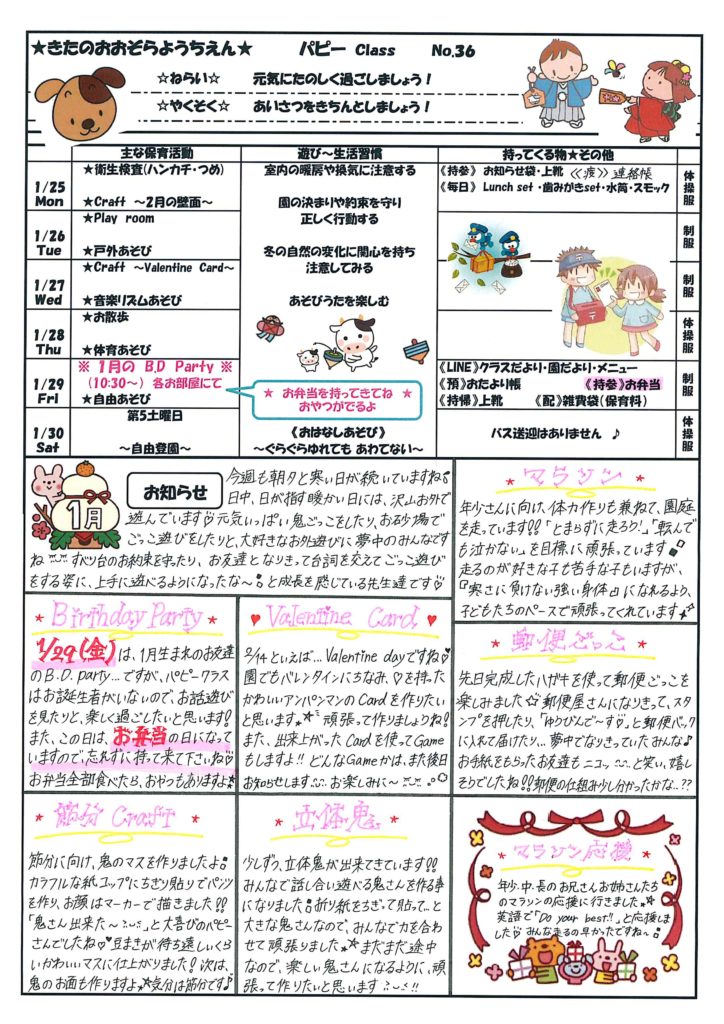 ★きたのおおぞらようちえん★ パピー Class No.36
☆ねらい☆ 元気にたのしく過ごしましょう！
☆やくそく☆ あいさつをきちんとしましょう！
主な保育活動 遊び～生活習慣 持ってくる物★その他
1/25 Mon
★衛生検査(ハンカチ・つめ)
★Craft ～2月の壁面～
室内の暖房や換気に注意する
園の決まりや約束を守り
《持参》 お知らせ袋・上靴 《疲》連絡帳
《毎日》 Lunch set ・歯みがきset・水筒・スモック
体操服
1/26 Tue
★Play room
★戸外あそび
正しく行動する
冬の自然の変化に関心を持ち
制服
1/27 Wed
★Craft ～Valentine Card～
★音楽リズムあそび
注意してみる
あそびうたを楽しむ
制服
1/28 Thu
★お散歩
★体育あそび
体操服
1/29 Fri
※ 1月の B.D Party ※
(10:30～) 各お部屋にて
★自由あそび
★ お弁当を持ってきてね ★
おやつがでるよ
《LINE》クラスだより・園だより・メニュー
《預》おたより帳 《持参》お弁当
《持帰》上靴 《配》雑費袋(保育料)
制服
1/30 Sat
第5土曜日
～自由登園～
《おはなしあそび》
～ぐらぐらゆれても あわてない～
バス送迎はありません ♪
体操服
1月
お知らせ
今週も朝夕と寒い日が続いていますね
日中、日が指す暖かい日には、沢山お外で
遊んでいます♡元気いっぱい鬼ごっこをしたり、お砂場で
ごっこ遊びをしたりと、大好きなお外遊びに夢中のみんなです
ね すべり台のお約束を守ったり、お友達となりきって台詞を交えてごっこ遊び
をする姿に、上手に遊べるようになったな～!と成長を感じている先生達です♡
★ マラソン ★
年少さんに向け、体力作りも兼ねて、園庭
を走っています!!「とまらずに走ろう!」「転んで
も泣かない」を目標に頑張っています
走るのが好きな子も苦手な子もいますが、
『寒さに負けない強い身体』になれるよう、
子どもたちのペースで頑張ってくれています
★ Birthday Party ★
1/29(金)は、1月生まれのお友達
のB.D.party…ですが、パピークラス
はお誕生者がいないので、お話遊び
を見たりと、楽しく過ごしたいと思います!
また、この日は、お弁当の日になって
いますので、忘れずに持って来て下さいね♡
お弁当全部食べたら、おやつもありますよ★
♥ Valentine Card ♥
2/14といえば… Valentine dayですね♡
園でもバレンタインにちなみ、♡を持った
かわいいアンパンマンのCardを作りたい
と思います。頑張って作りましょうね!
また、出来上がったCardを使ってGame
もしますよ!! どんなGameかは、また後日
お知らせします お楽しみに～
★ 郵便ごっこ ★
先日完成したハガキを使って郵便ごっこを
楽しみました☆郵便屋さんになりきって、スタ
ンプを押したり、「ゆうびんど～す♡」と郵便バック
に入れて届けたり…夢中でなりきっていたみんな♪
お手紙をもらったお友達もニコッと笑い、嬉し
そうでしたね!!郵便の仕組み少し分かったかな..??
★ 節分 Craft ★
節分に向け、鬼のマスを作りましたよ
カラフルな紙コップにちぎり貼りでパンツ
を作り、お顔はマーカーで描きました!!
「鬼さん出来た～」と大喜びのパピー
さんでしたね♡豆まきが待ち遠しいくら
いかわいいマスに仕上がりました!次は、
鬼のお面も作りますよ★気分は節分です♪
★ 立体鬼 ★
少しずつ、立体鬼が出来てきています!!
みんなで話し合い遊べる鬼さんを作る事
になりました!折り紙をちぎって貼って…と
大きな鬼さんなので、みんなで力を合わ
せて頑張りました★まだまだ途中
なので、楽しい鬼さんになるように、頑
張って作りたいと思います!!
★ マラソン応援 ★
年少・中・長のお兄さんお姉さんたち
のマラソンの応援に行きました★
英語で「Do your best!!」と応援しま
した♡みんな走るの早かったですね～!